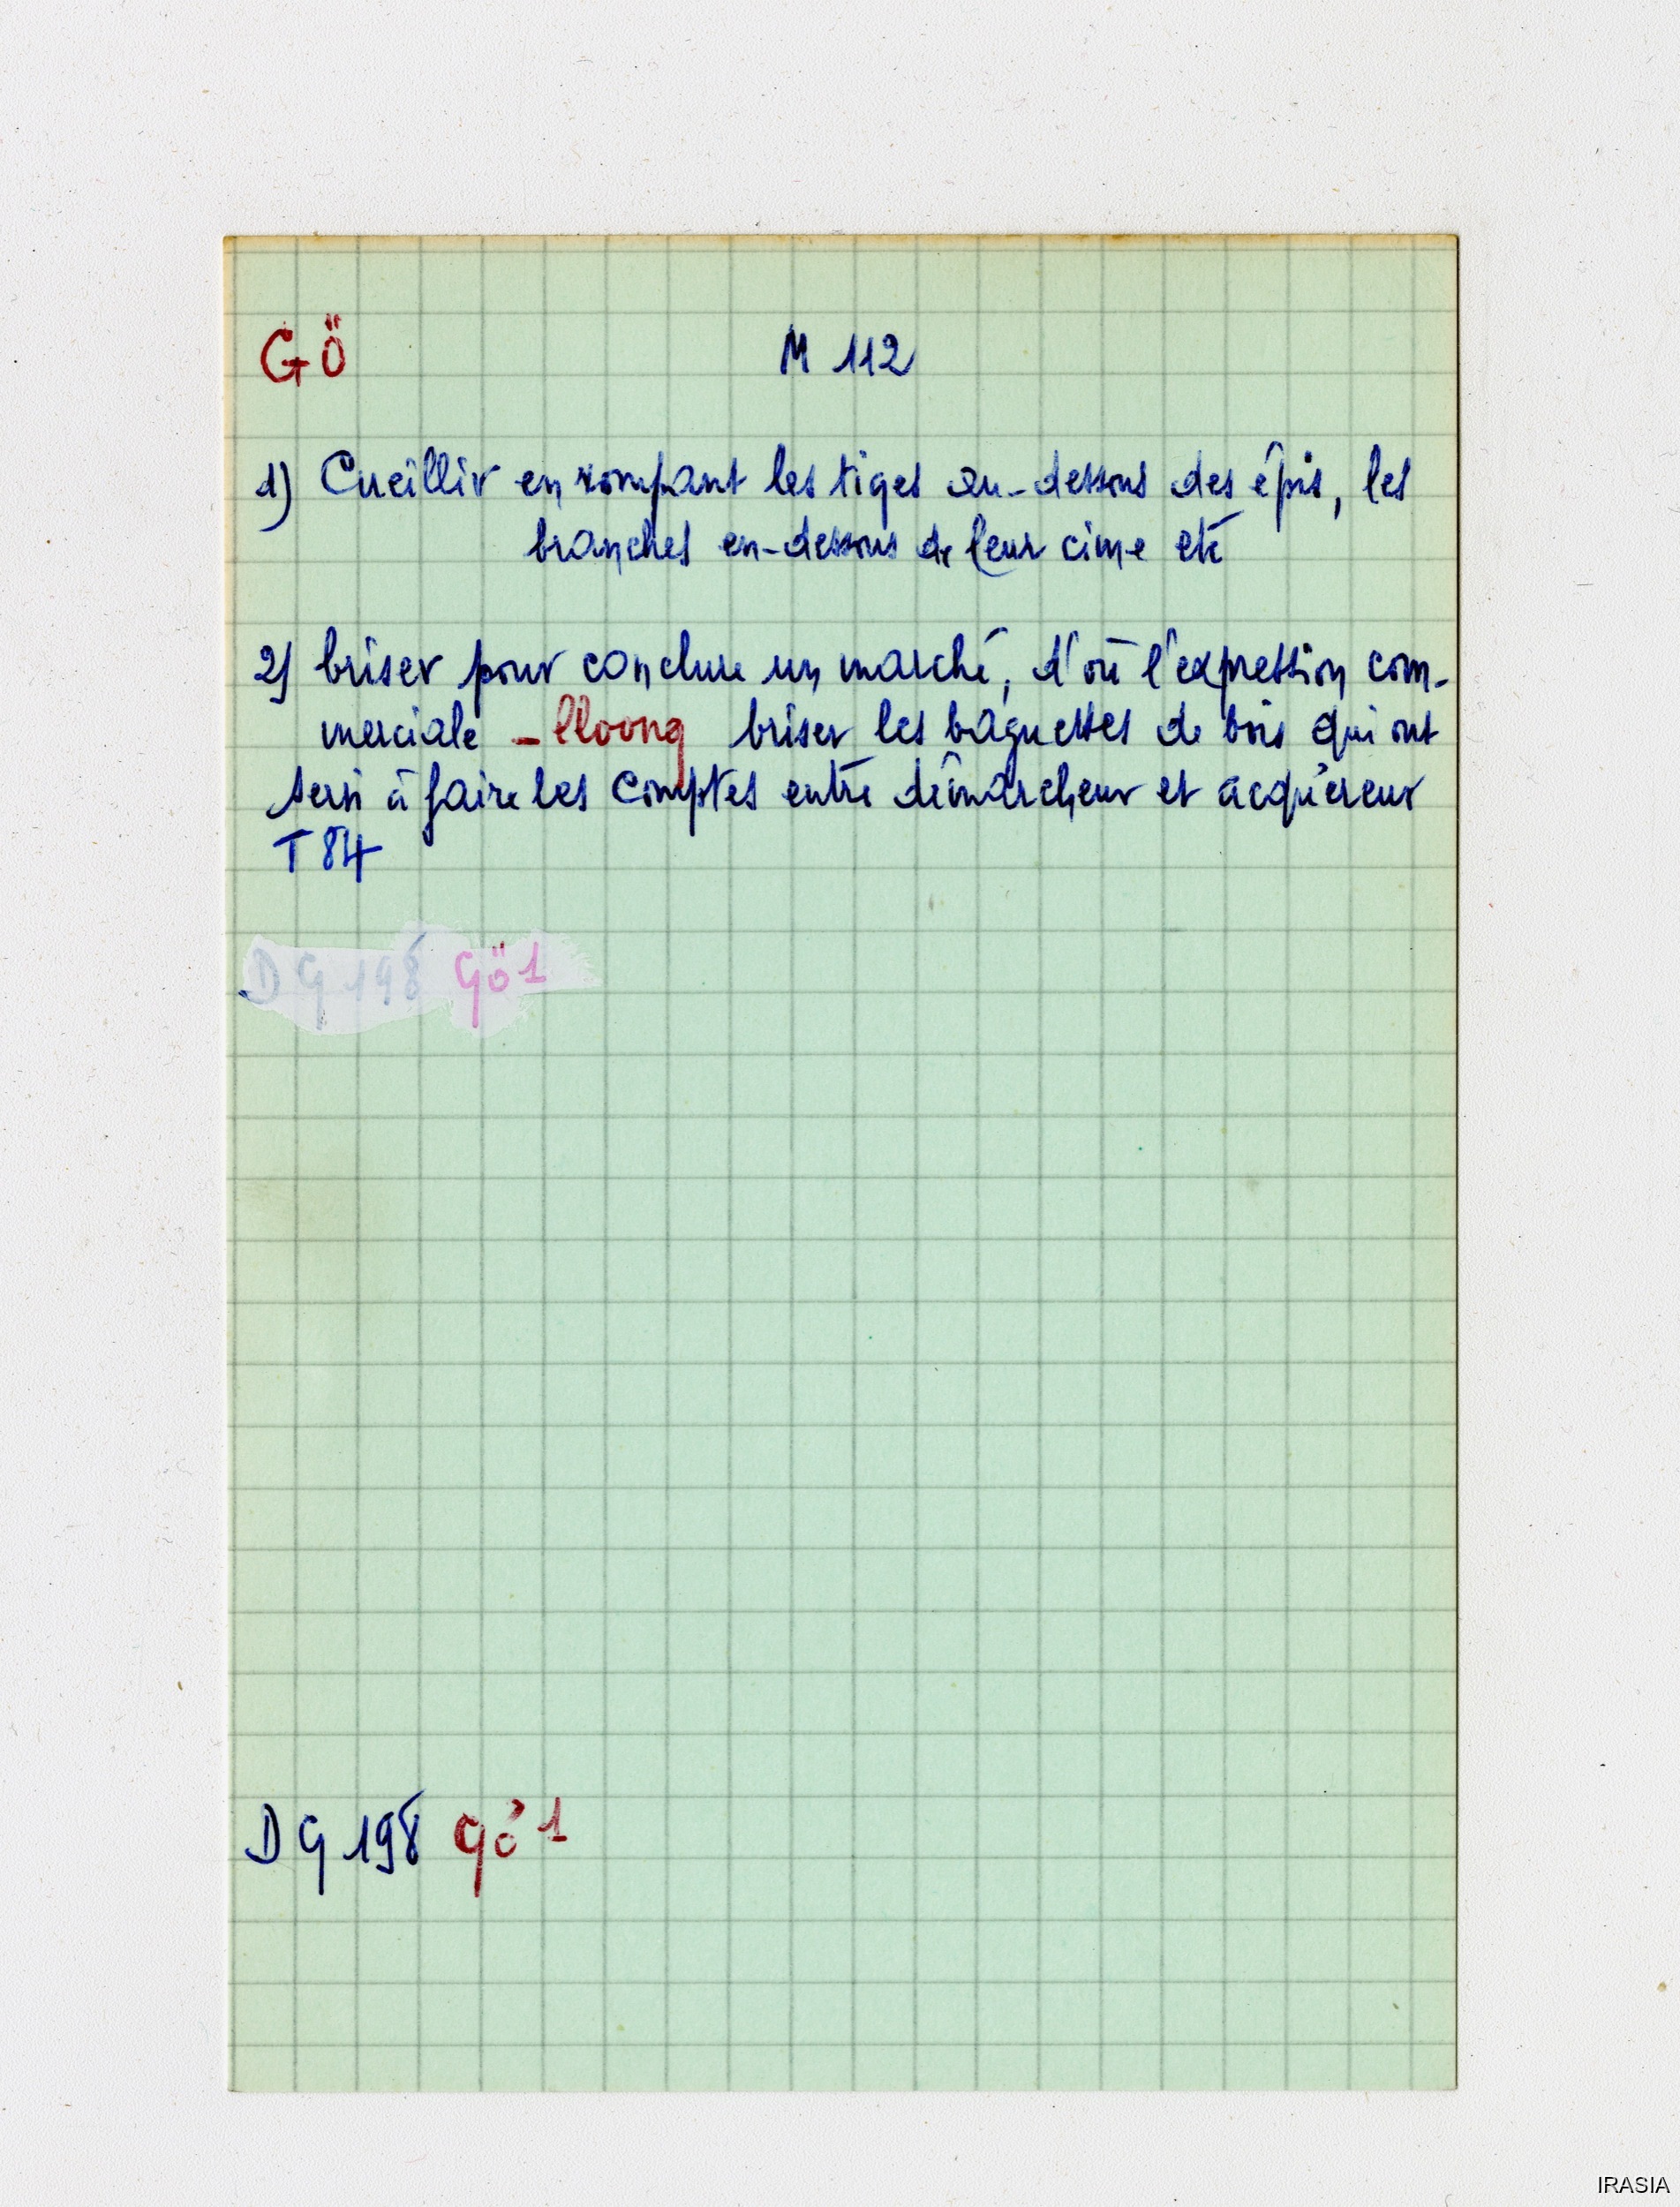 GÖ M 112
1) Cueillir en rompant les tiges au-dessous des épis, les
branches en-dessous de leur cime etc
2) briser pour conclure un marché, d'où l'expression com-
merciale - lloong briser les baguettes de bois qui ont
servi à faire les comptes entre démarcheur et acquéreur
T 84
DG 198 Gö 1
DG 198 gö 1
IRASIA